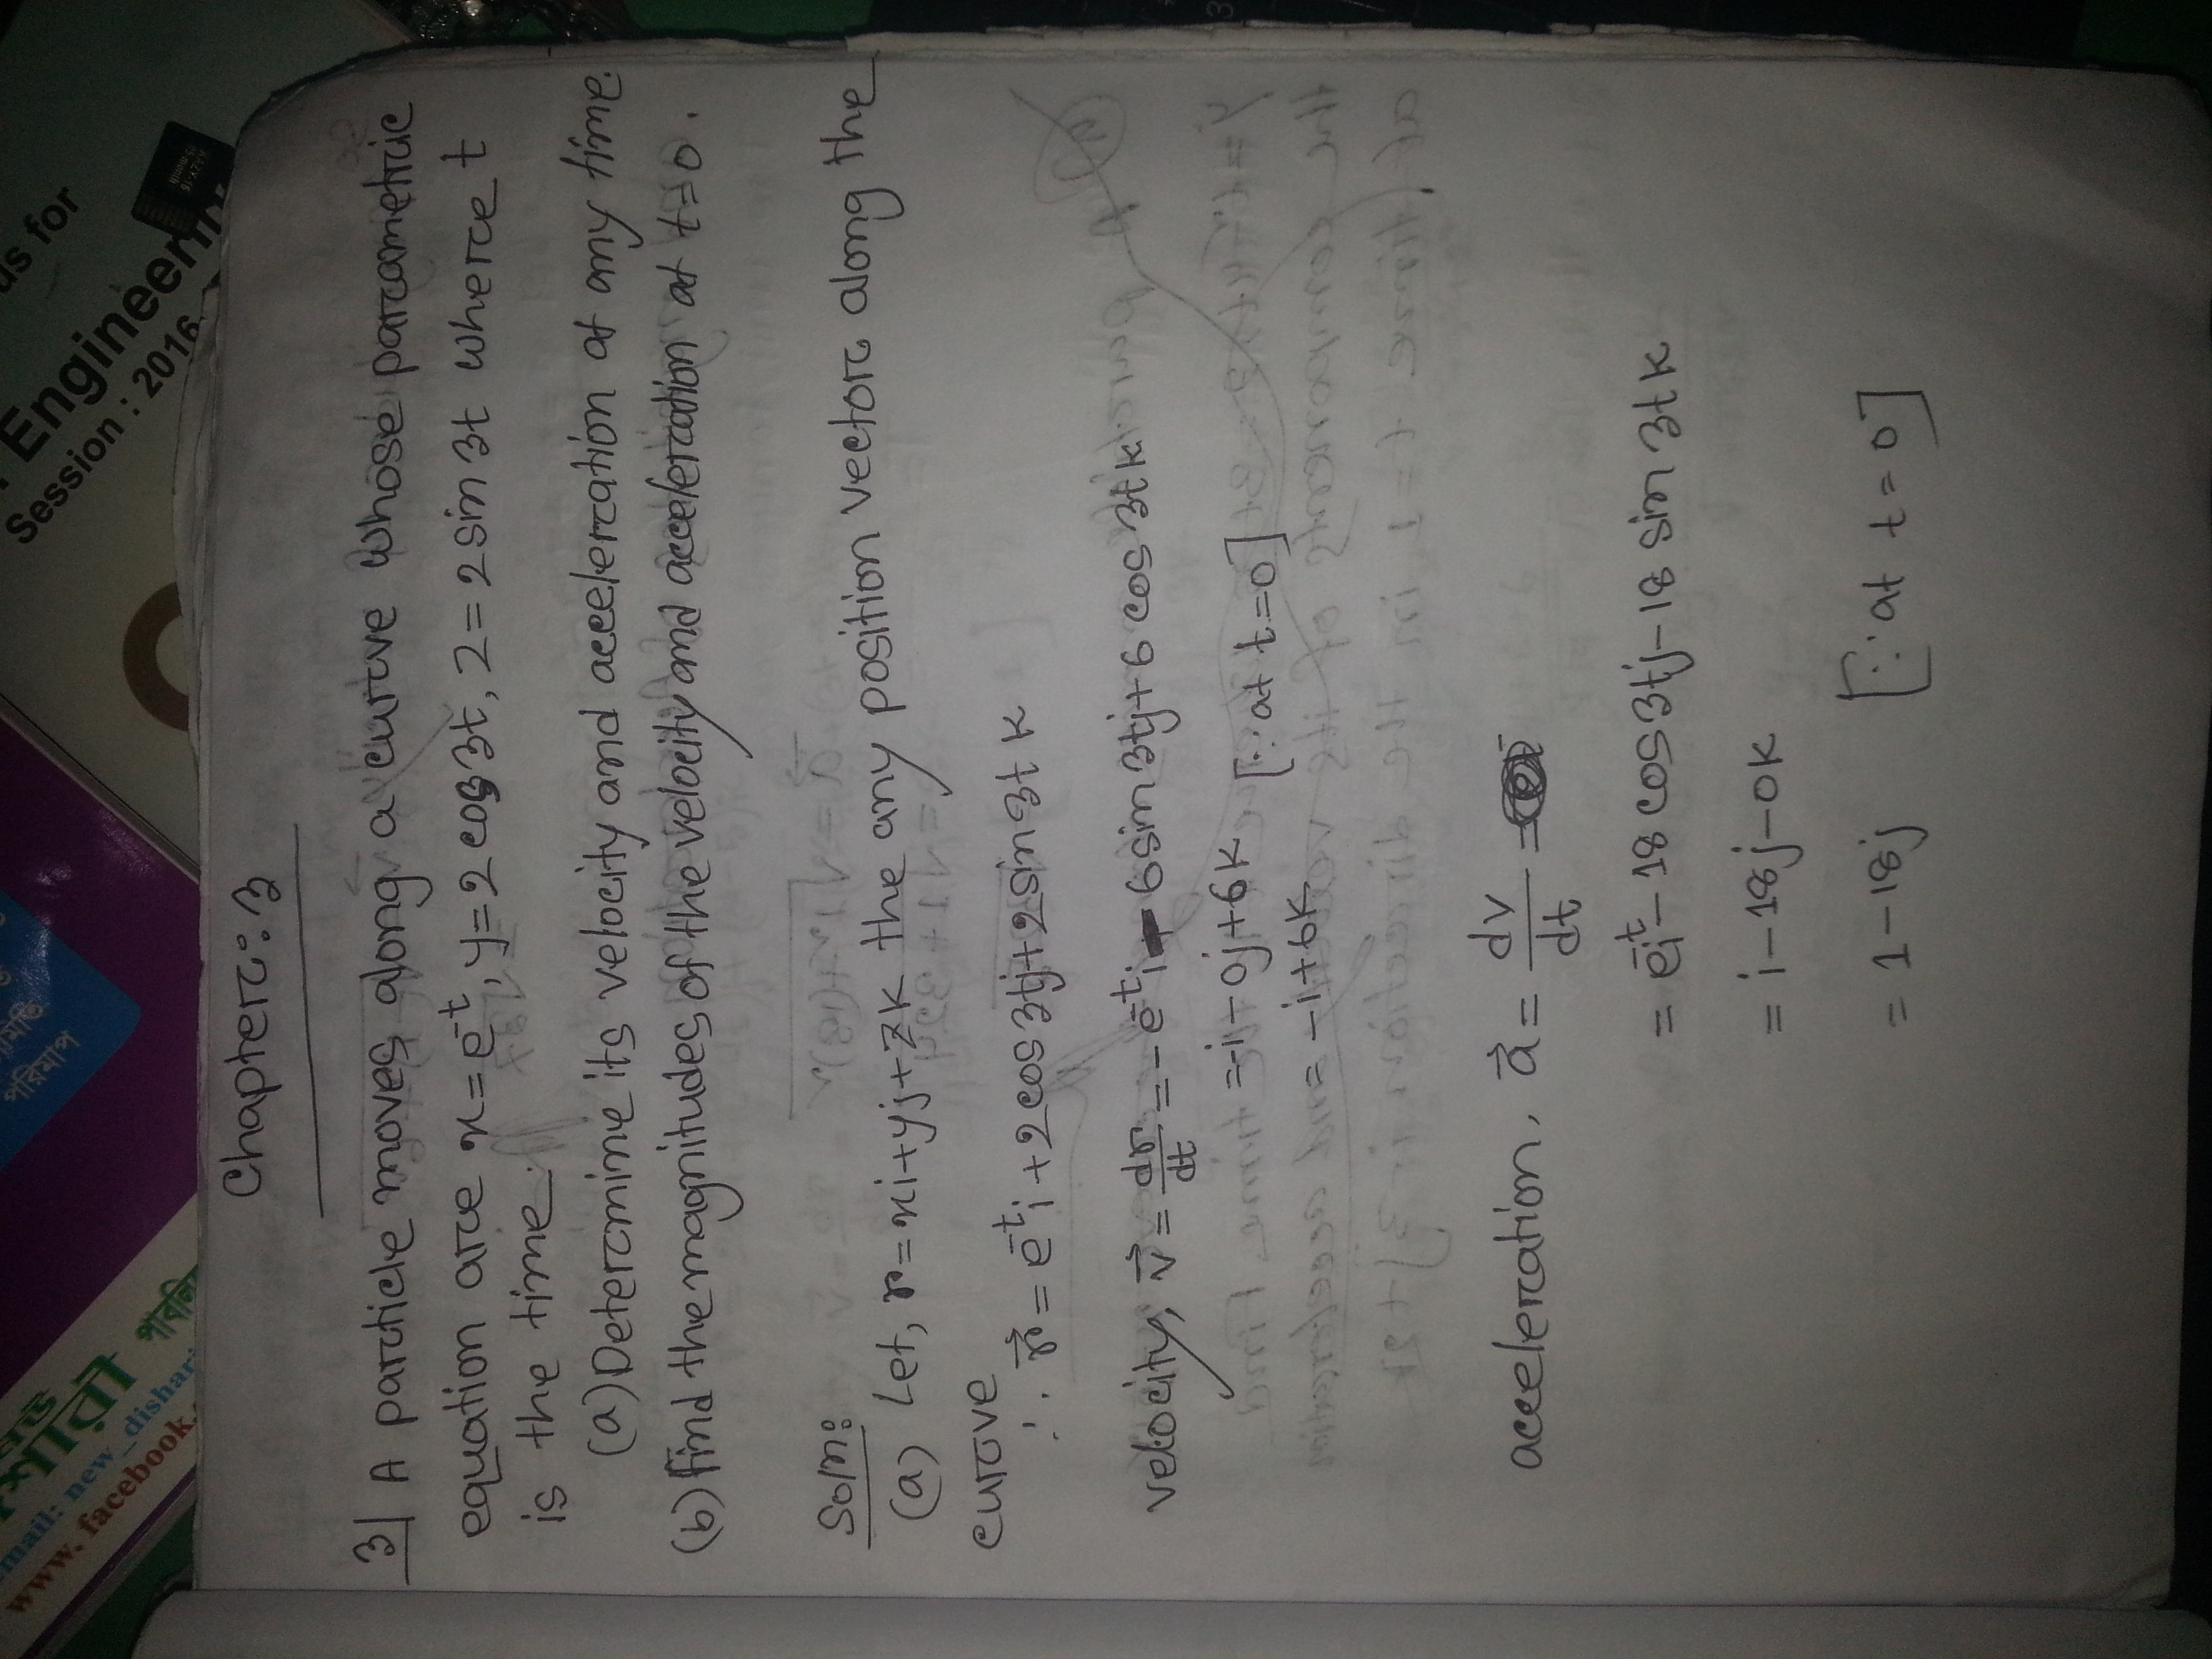 শারী
পাবলি
email: new_dishari
www. facebook.
পরিমাপ
us for
Engineering
Session : 2016-
Chapter: 3
3| A particle moves along a curve whose parametric
equation are x = e^-t, y = 2 cos 3t, z = 2 sin 3t where t
is the time.
(a) Determine its velocity and acceleration at any time.
(b) find the magnitudes of the velocity and acceleration at t=0.
Soln:
(a) Let, r = xi+yj+zk the any position vector along the
curve
∴ r⃗ = e^-t i + 2 cos 3tj + 2 sin 3t k
velocity, v⃗ = dr/dt = -e^-t i - 6 sin 3tj + 6 cos 3t k
= -i - 0j + 6k [∵ at t=0]
= -i + 6k
acceleration, a⃗ = dv/dt =
= e^-t i - 18 cos 3tj - 18 sin 3t k
= i - 18j - 0k
= 1 - 18j [∵ at t = 0]